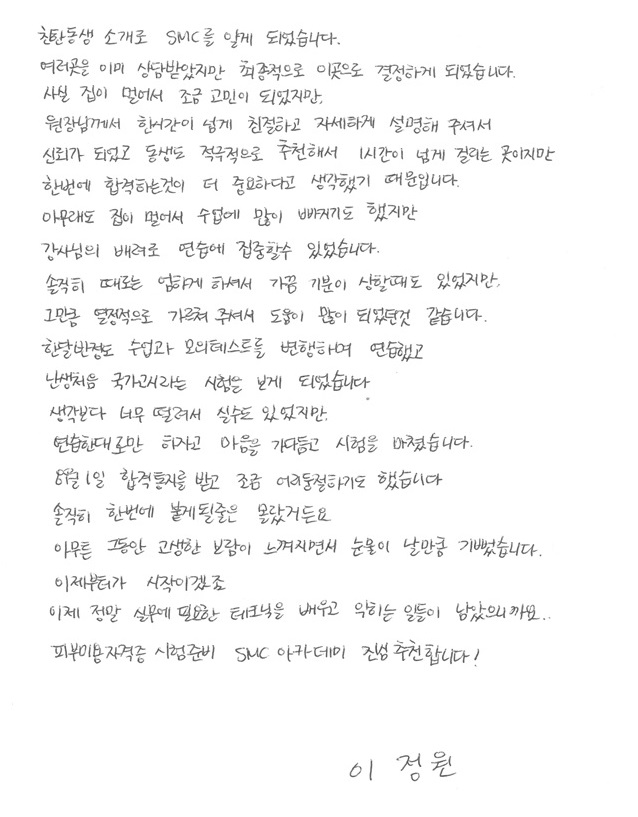 친한동생 소개로 SMC를 알게 되었습니다.
여러곳을 이미 상담받았지만 최종적으로 이곳으로 결정하게 되었습니다.
사실 집이 멀어서 조금 고민이 되었지만,
원장님께서 한시간이 넘게 친절하고 자세하게 설명해 주셔서
신뢰가 되었고 동생도 적극적으로 추천해서 1시간이 넘게 걸리는 곳이지만
한번에 합격하는것이 더 중요하다고 생각했기 때문입니다.
아무래도 집이 멀어서 수업에 많이 빠지기도 했지만
강사님의 배려로 연습에 집중할수 있었습니다.
솔직히 때로는 엄하게 하셔서 가끔 기분이 상할때도 있었지만,
그만큼 열정적으로 가르쳐 주셔서 도움이 많이 되었던것 같습니다.
한달반정도 수업과 모의테스트를 병행하며 연습했고
난생처음 국가고시라는 시험을 보게 되었습니다
생각보다 너무 떨려서 실수도 있었지만,
연습한대로만 하자고 마음을 가다듬고 시험을 마쳤습니다.
8월 1일 합격통지를 받고 조금 어리둥절하기도 했습니다
솔직히 한번에 붙게될줄은 몰랐거든요
아무튼 그동안 고생한 보람이 느껴지면서 눈물이 날만큼 기뻤습니다.
이제부터가 시작이겠죠
이제 정말 실무에 필요한 테크닉을 배우고 익히는 일들이 남았으니까요..
피부미용자격증 시험준비 SMC 아카데미 진심 추천합니다!
이 정원